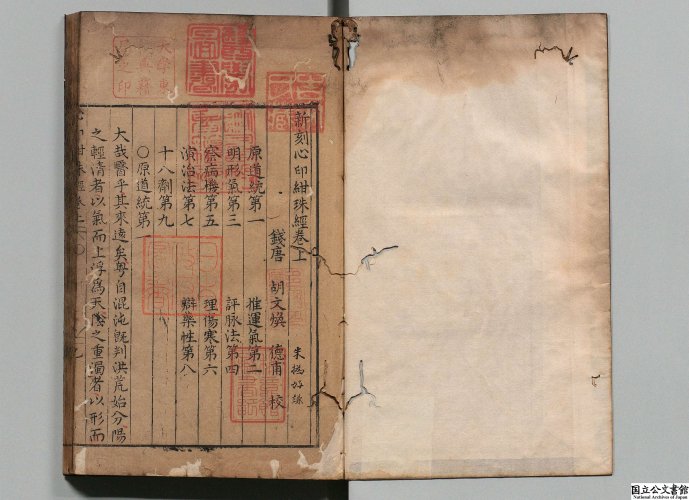 新刻心印紺珠經卷上
朱撝好謙
錢唐 胡文煥 德甫 校
原道統第一 推運氣第二
明形氣第三 評脉法第四
察病機第五 理傷寒第六
演治法第七 辯藥性第八
十八劑第九
○原道統第一
大哉醫乎其來遠矣粤自混沌旣判洪荒始分陽
之輕清者以氣而上浮爲天陰之重濁者以形而
国立公文書館
National Archives of Japan